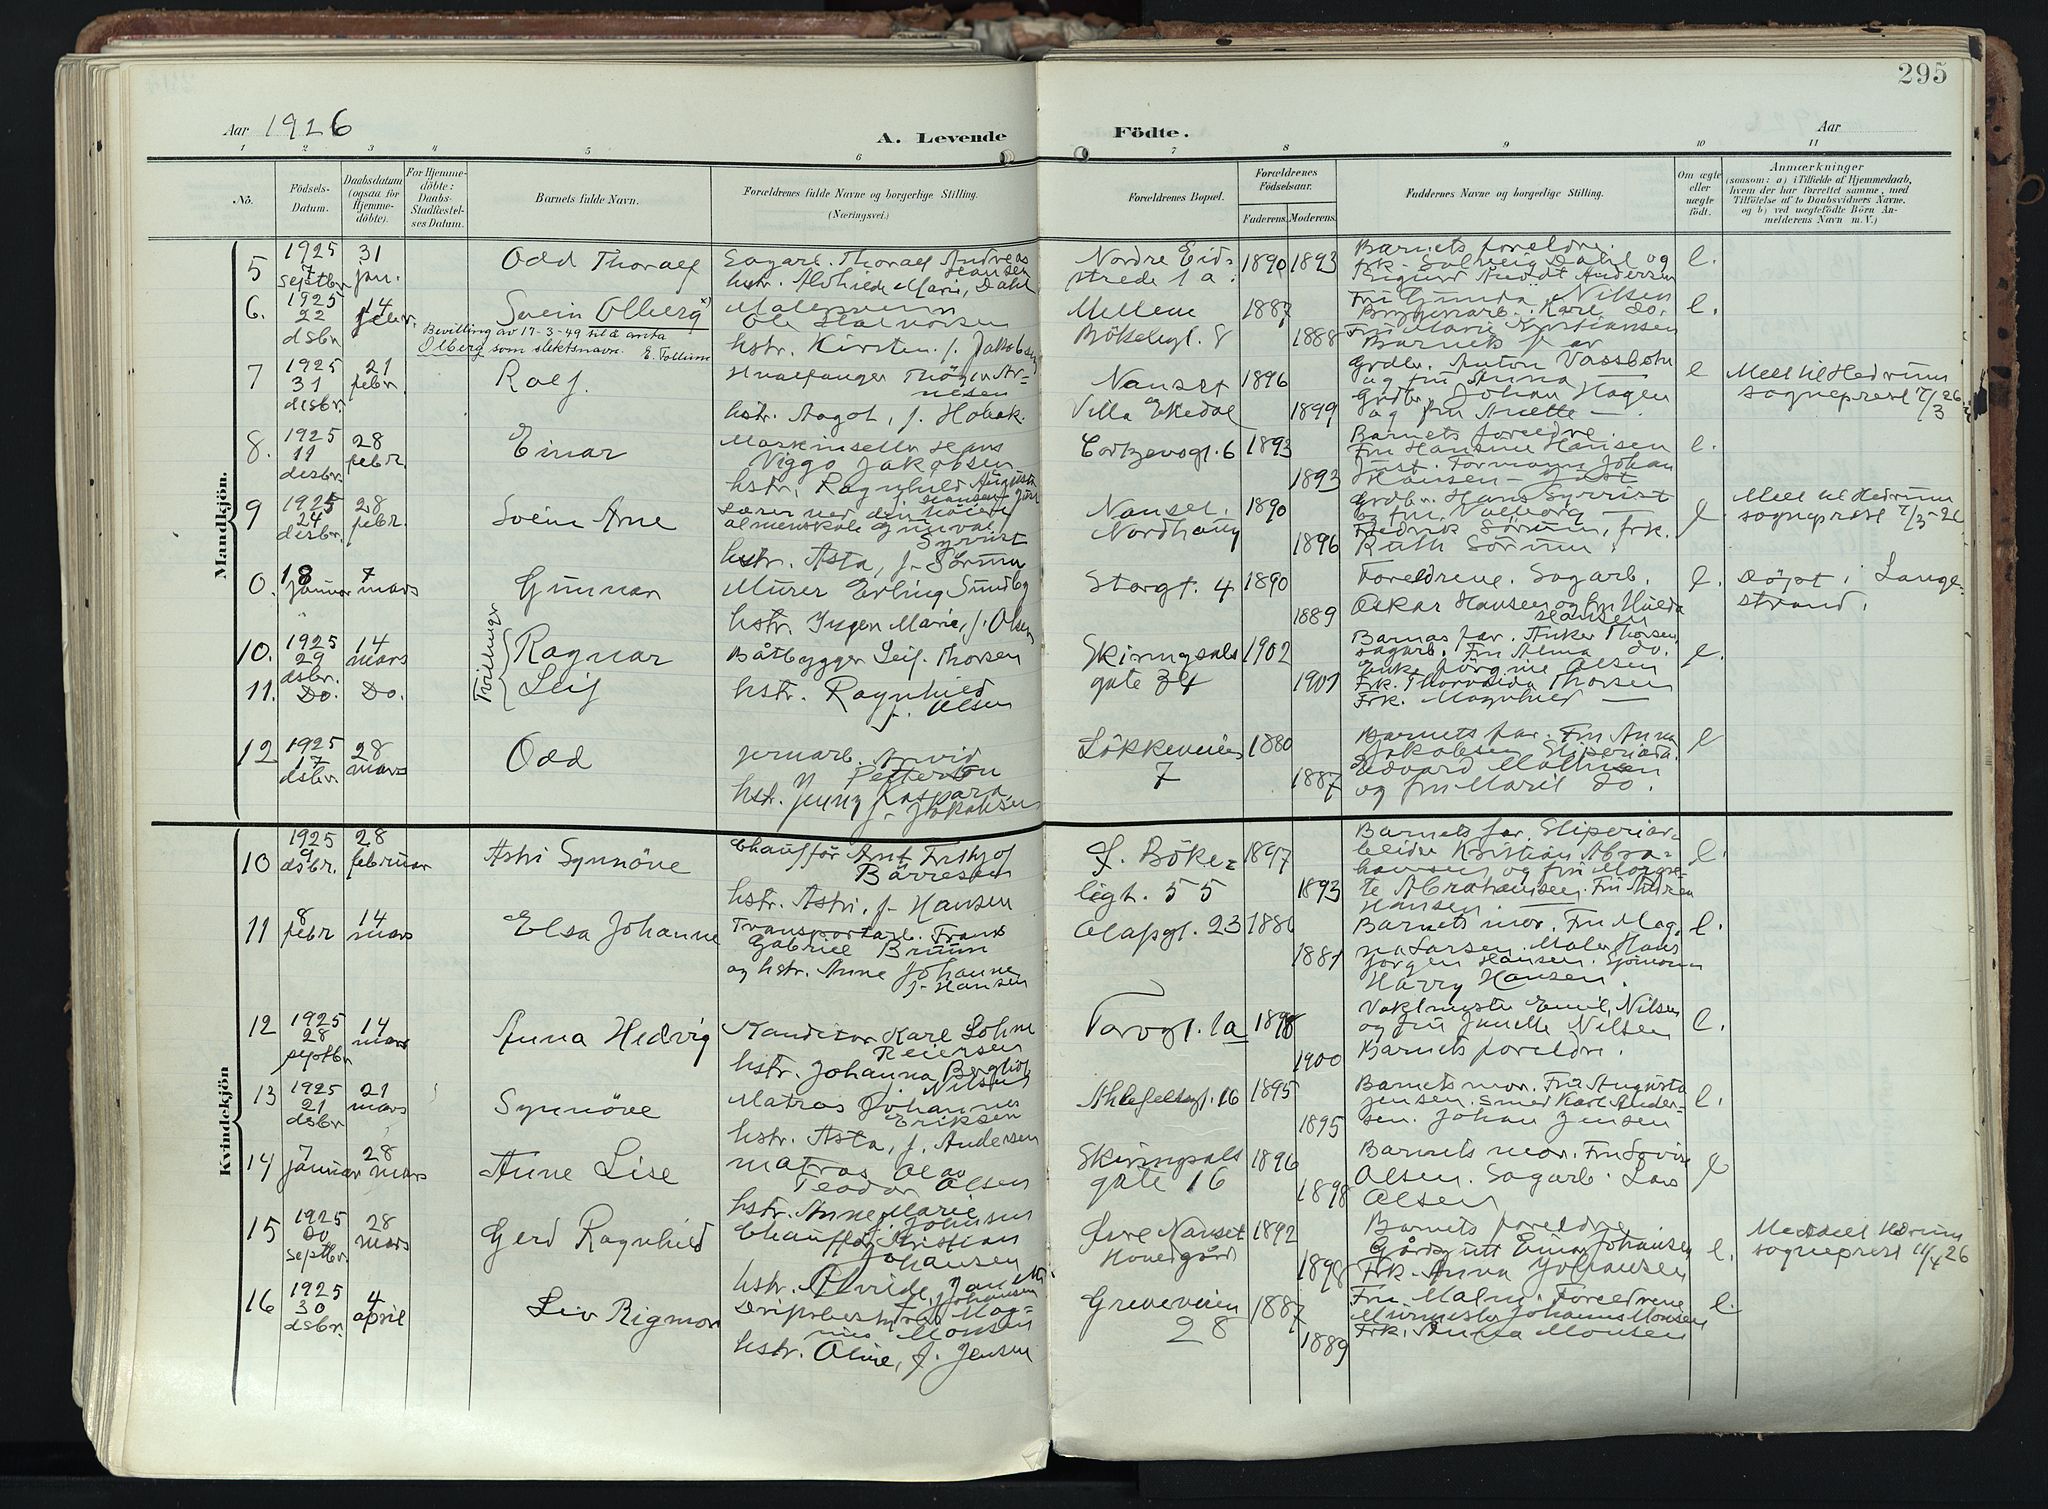 295
Aar 1926
A. Levende Födte.
Aar
1 2 3 4 5 6 7 8 9 10 11
No.
Födsels-
Datum.
Daabsdatum
(ogsaa for
Hjemme-
döbte).
For Hjemme-
döbte:
Daabs-
Stadfæstel-
ses Datum.
Barnets fulde Navn.
Forældrenes fulde Navne og borgerlige Stilling.
(Næringsvei.)
Forældrenes Bopæl.
Forældrenes
Födselsaar.
Faderens. Moderens.
Faddernes Navne og borgerlige Stilling.
Om ægte
eller
uægte
födt.
Anmærkninger
(saasom: a) i Tilfælde af Hjemmedaab,
hvem der har forrettet samme, med
Tilföielse af to Daabsvidners Navne.
og b) ved uegtefödte Börn An-
melderens Navn m. V.)
Mandkjön.
5
1925
7
septbr
31
jan.
Odd Thoralf
Sagarb. Thoralf Andreas
Hansen
hstr. Alvhilde Marie, Dahl
Nordre Eid-
strede 1a.
1890 1893
Barnets foreldre.
frk. Solveig Dahl og
Sigurd Andersen
e.
6.
1925
22
dsbr
14
febr.
Svein Olberg x)
Bevilling av 17-3-49 til å anta
Olberg som slektsnavn. E. Tollum
Ole Halvorsen
hstr. Kirsten f. Jakobsen
Mellem
Bökeligt. 8
1887
1888
Fru Gunda Nilsen
Bryggearb. Kare do.
Fru Marie Kristiansen
Barnets far
e.
7
1925
31
desbr.
21
febr.
Rolf.
Hvalfanger Thöger Ar-
nesen
hstr. Aagot, f. Holsak.
Nanset
Villa Ekedal
1896
1899
Grdbr. Anton Vassbotn
og fru Anna —
Grdbr. Johan Hagen
og fru Anette —
e
Meld til Hedrum
sogneprest 7/3 26.
8.
1925
11
desbr.
28
febr.
Einar
Maskinsetter Hans
Viggo Jakobsen
hstr. Ragnhild Augusta
f. Hansen Just
Cortzensgt. 6
1893
1893
Barnets foreldre.
Fru Hansine Hansen
Just. Formann Johan
Hansen Just
e.
9
1925
24
desbr.
28
febr.
Svein Arne
Lærer ved den höiere
almenskole Gunval
Syvrist
hstr. Asta, f. Sörum
Nanset,
Nordhaug
1890
1896
Grdbr. Hans Syvrist
og fru Valborg —
Fredrik Sörum, frk.
Ruth Sörum.
e.
Meld til Hedrum
sogneprest 7/3-26
0.
18
januar
7
mars
Gunnar
Murer Erling Sundby
hstr. Inger Marie, f. Olsen
Storgt. 4
1890
1889
Foreldrene. Sagarb.
Oskar Hansen og fru Hulda
Hansen
e.
Döpt i Lange-
strand.
10.
1925
29
dsbr.
14
mars
Tvillinger
Ragnar
Båtbygger Leif Thorsen
Skiringsals
gate 34
1902
1901
Barnas far. Anker Thorsen
sagarb. Fru Alma do.
Enke Jörgine Olsen
Frk. Thorvalda Thorsen
Frk. Magnhild —
e.
11.
Do.
Do.
Leif
hstr. Ragnhild
f. Olsen
12
1925
17
dsbr.
28
mars
Odd
Jernarb. Arvid
Petterson
hstr. Jenny Kaspara
f. Jakobsen
Lökkeveien
7
1880
1887
Barnets far. Fru Anna
Jakobsen. Sliperiarb.
Edvard Mathisen
og fru Marit do.
e
Kvindekjön
10
1925
9
dsbr.
28
februar
Astri Synnöve
Chafför Arnt Fritjof
Börresen
hstr. Astri, f. Hansen
f. Böke-
ligt. 55
1897
1893
Barnets far. Sliperiar-
beider Kristian Abra-
hamsen og fru Margre-
te Abrahamsen. Fru Andrea
Hansen.
e.
11
8
febr
14
mars
Elsa Johanne
Transportarb. Frans
Gabriel Bruun
og hstr. Anne Johanne
f. Hansen
Olafsgt. 23
1886
1881
Barnets mor. Fru Mag-
na Larsen. Maler Hans
Jörgen Hansen. Sjömann
Harry Hansen.
e.
12
1925
28
septbr
14
mars
Anna Hedvig
Kanditor Karl Lohne
Reiersen
hstr. Johanna Bergliot
Nilsen
Torvgt. 1a
1898
1900
Vaktmester Emil Nilsen
og fru Janette Nilsen
Barnets foreldre.
e.
13
1925
21
dsbr
21
mars
Synnöve
Matros Johannes
Eriksen
hstr. Asta, f. Andersen
Ahlefeltsgt. 16
1895
1895
Barnets mor. Fru Augusta
Jensen. Smed Karl Ander-
sen. Johan Jensen
e.
14
7
januar
28
mars
Anne Lise
Matros Olav
Teodor Olsen
hstr. Anne Marie
f. Johnsen
Skiringsals
gate 16
1896
1898
Barnets mor. Fru Lovise
Olsen. Sagarb. Lars
Olsen
e
15
1925
20
septbr.
28
mars
Gerd Ragnhild
Chafför Kristian
Johansen
Övre Nanset
Hovedgård
1892
1898
Barnets foreldre.
Gårdsgutt Einar Johansen
Frk. Anna Johansen
e.
sogneprest 11/4 26
16
1925
30
dsbr.
4
april
Liv Rigmor
nus Monsen
hstr. Oline, f. Jensen
Greveveien
28
1887
1889
Fru Malm. Foreldrene
Murmester Johannes Monsen
Frk. Anna Monsen
e.